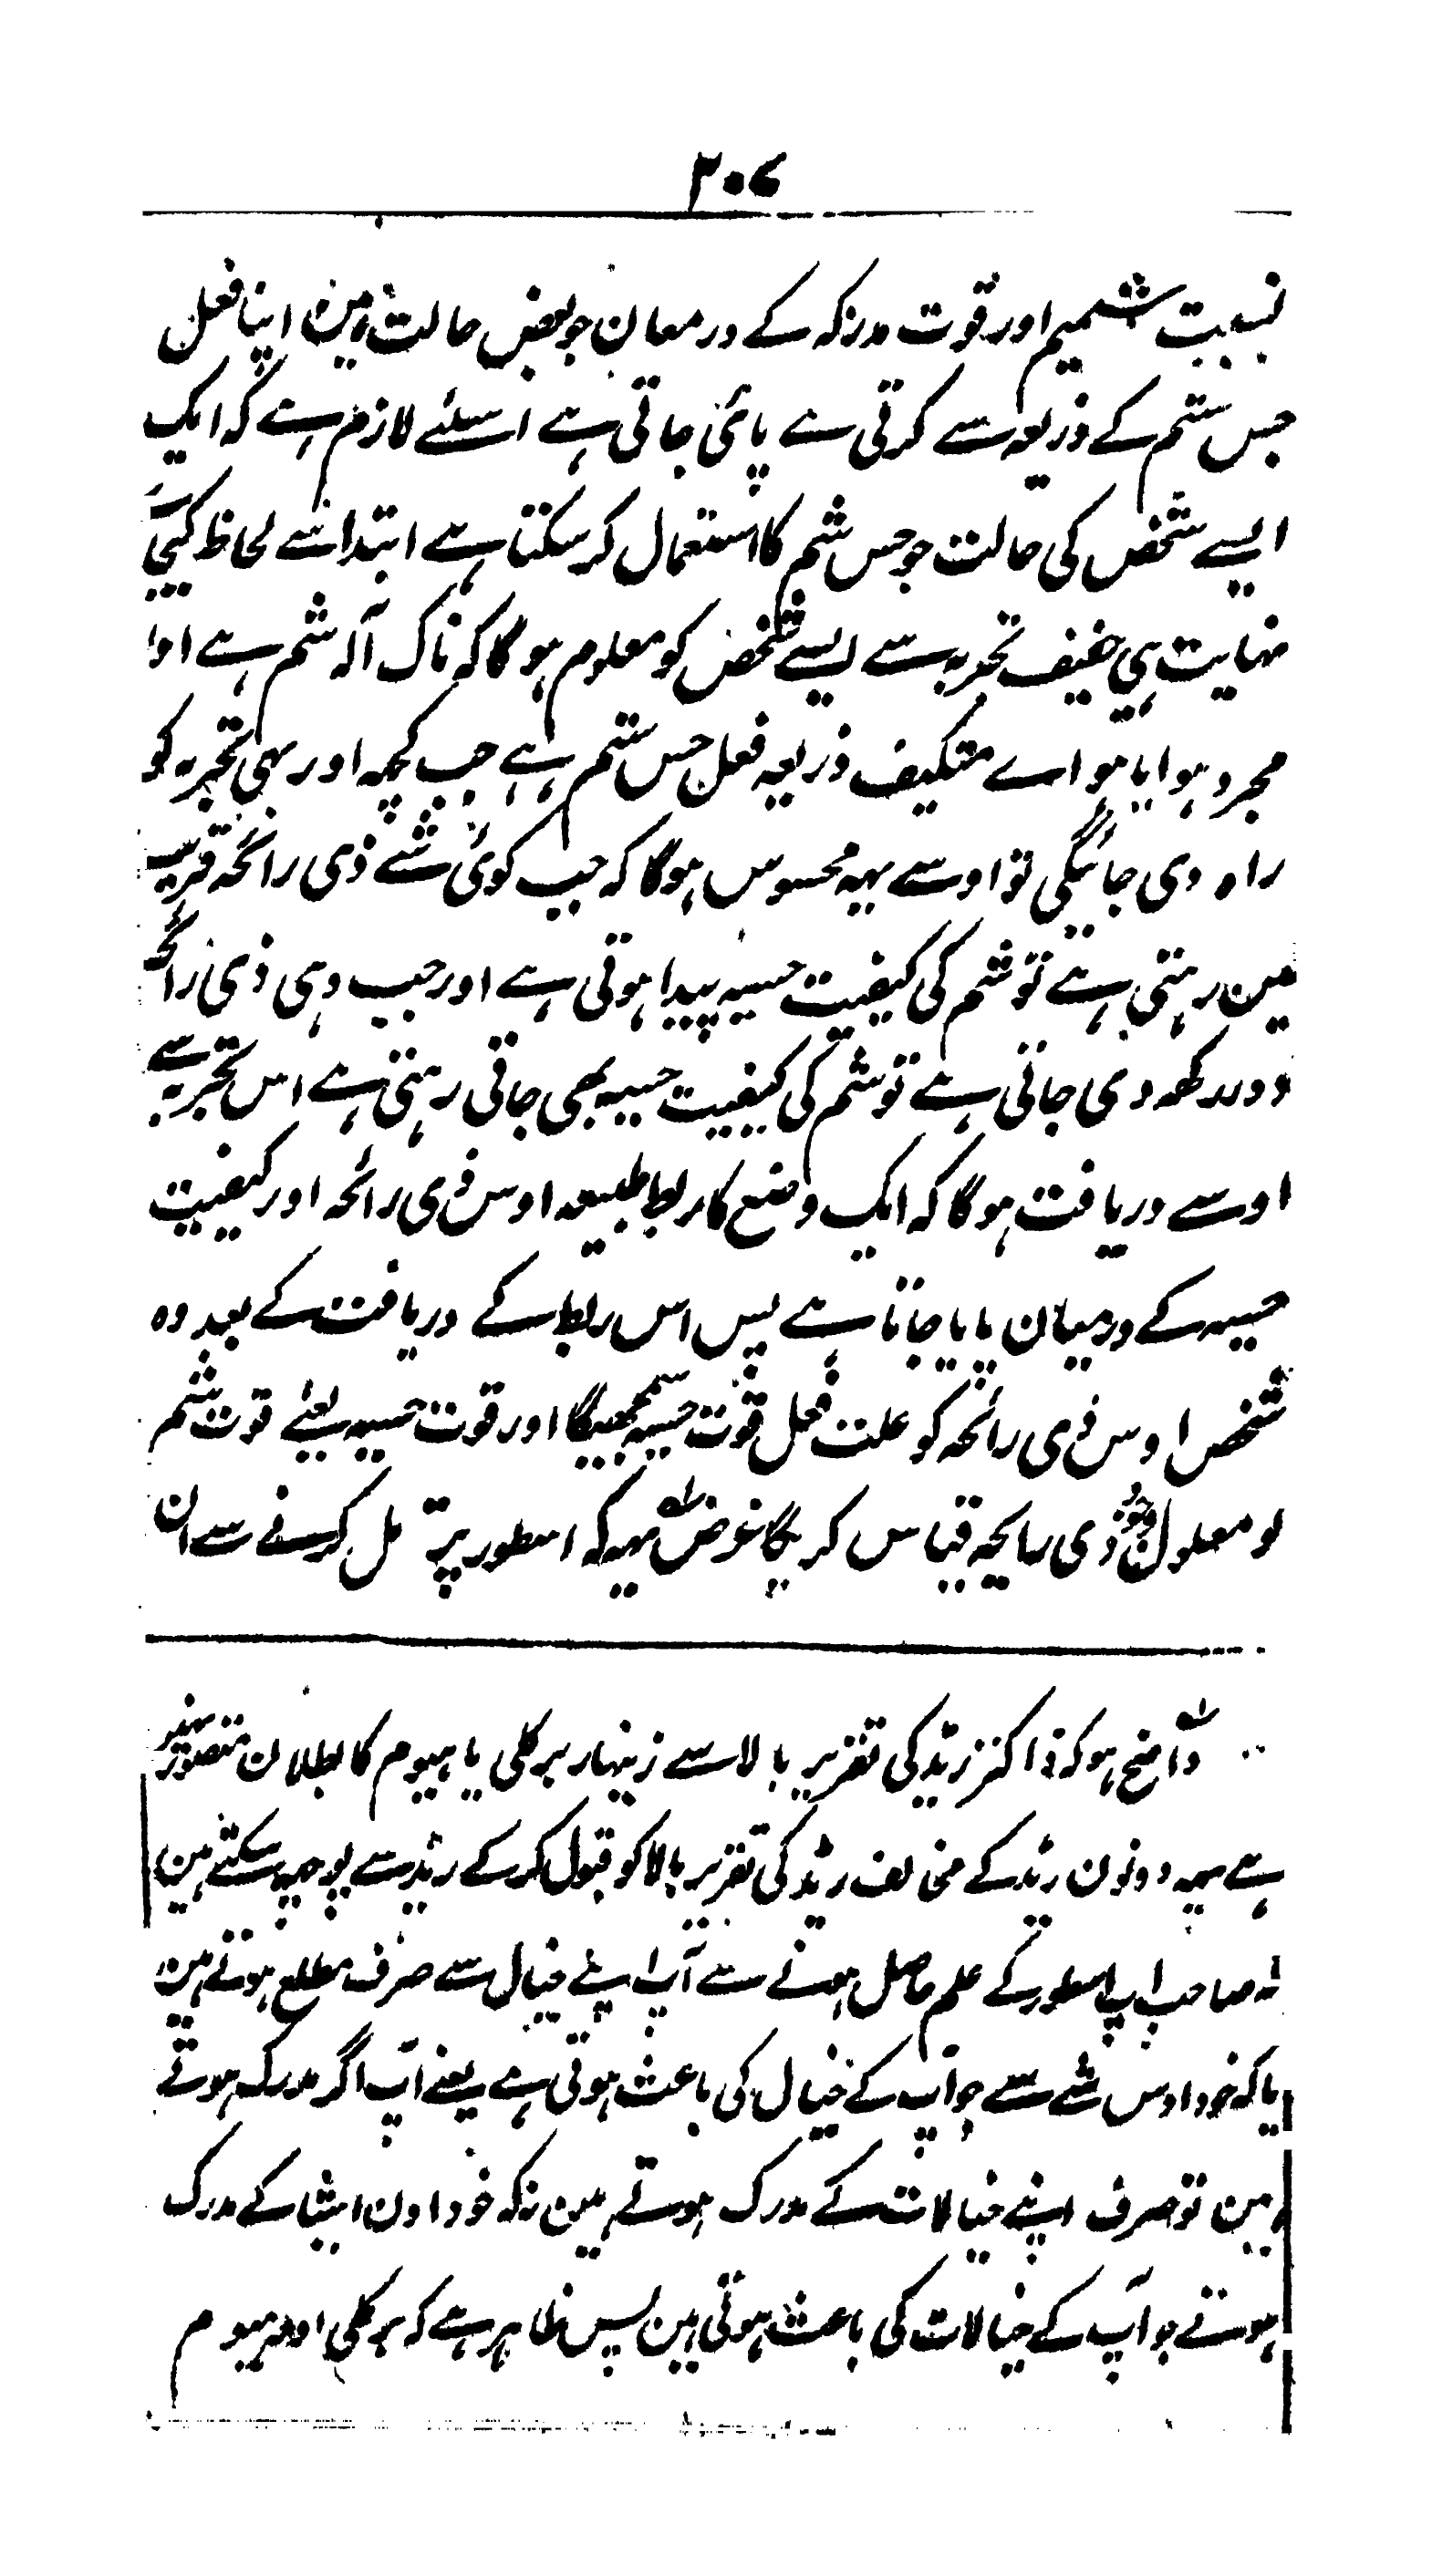 ۲۰۷
نسبت شمیم اور قوت مدرکہ کے درمیان جو بعض حالت مین اپنا فعل
حس شم کے ذریعہ سے کرتی ہے پائی جاتی ہے اسلئے لازم ہے کہ ایک
ایسے شخص کی حالت جو حس شم کا استعمال کر سکتا ہے ابتدا سے لحاظ کیجئے
نہایت ہی خفیف تجربہ سے ایسے شخص کو معلوم ہو گا کہ ناک آلہ شم ہے اور
مجرد ہوا یا ہواے متکیف ذریعہ فعل حس شم ہے جب کچھ اور بہی تجربہ کو
راہ دی جائیگی تو اوسے یہہ محسوس ہوگا کہ جب کوئی شے ذی رائحہ قریب
مین رہتی ہے تو شم کی کیفیت حسیہ پیدا ہوتی ہے اور جب وہی ذی رائحہ
دور رکھدی جاتی ہے تو شم کی کیفیت حسیہ بھی جاتی رہتی ہے اس تجربہ سے
اوسے دریافت ہو گا کہ ایک وضع کا ربط طبیعہ اوس ذی رائحہ اور کیفیت
حسیہ کے درمیان پایا جاتا ہے پس اس ربط کے دریافت کے بعد وہ
شخص اوس ذی رائحہ کو علت فعل قوت حسیہ سمجھیگا اور قوت حسیہ یعنے قوت شم
کو معلول ذی رایحہ قیاس کریگا غرض یہہ کہ اسطور پر کرنے سے ان
واضح ہو کہ ڈاکٹر ریڈ کی تقریر بالا سے زینہار برکلی یا ہیوم کا بطلان متصور نہین
ہے یہہ دونون ریڈ کے مخالف ریڈ کی تقریر بالا کو قبول کر کے ریڈ سے پوچہہ سکتے ہین
کہ صاحب اب اسطور کے علم حاصل ہونے سے آپ اپنے خیال سے صرف مطلع ہوتے ہین
یا کہ خود اوس شے سے جو آپ کے خیال کی باعث ہوتی ہے یعنے آپ اگر مدرک ہوتے
ہین تو صرف اپنے خیالات کے مدرک ہوتے ہین نکہ خود اون اشیا کے مدرک
ہوتے جو آپ کے خیالات کی باعث ہوتی ہین پس ظاہر ہے کہ برکلی اور ہیوم